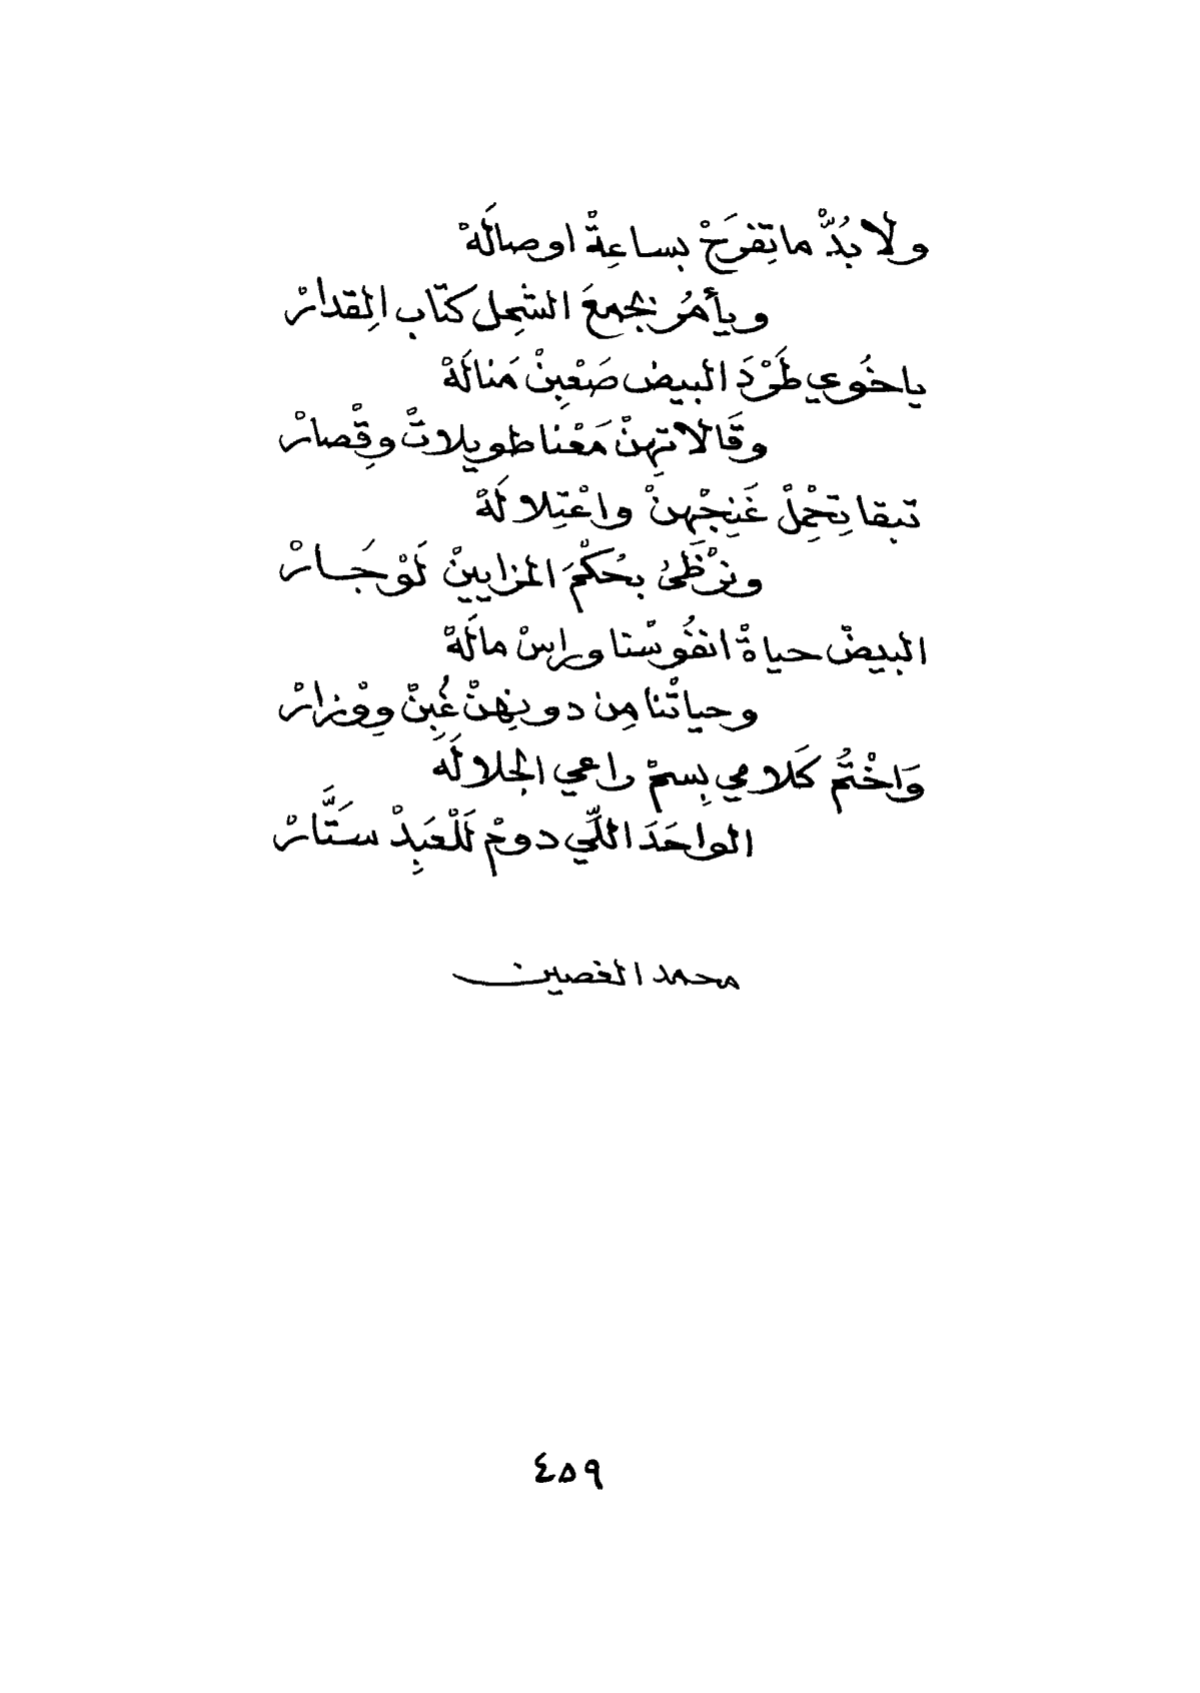 ولا بُدّْ ماتِفرَحْ بساعِةْ اوصالَهْ
ويأمُر بجمعَ الشِمل كتّاب الِمقدارْ
ياخُوي طَرْدَ البيض صَعْبِنْ مَنالَهْ
وقَالاتهِنْ مَعْنا طويلاتْ وقِْصارْ
تبقا تِحْمِلْ غَنِجْهنْ واعْتِلالَهْ
ونرْظَىْ بحُكْمَ المزايينْ لَوْجَارْ
البيضْ حياةْ انفُوسْنا وراسْ مالَهْ
وحياتْنا مِن دونِهنْ غُبِنْ ووْزارْ
وَاخْتُم كَلامي بِسمْ راعي الجلالَهَ
الواحَدَ اللّي دومْ لَلْعَبِدْ ستَّارْ
محمد الغصين
٤٥٩